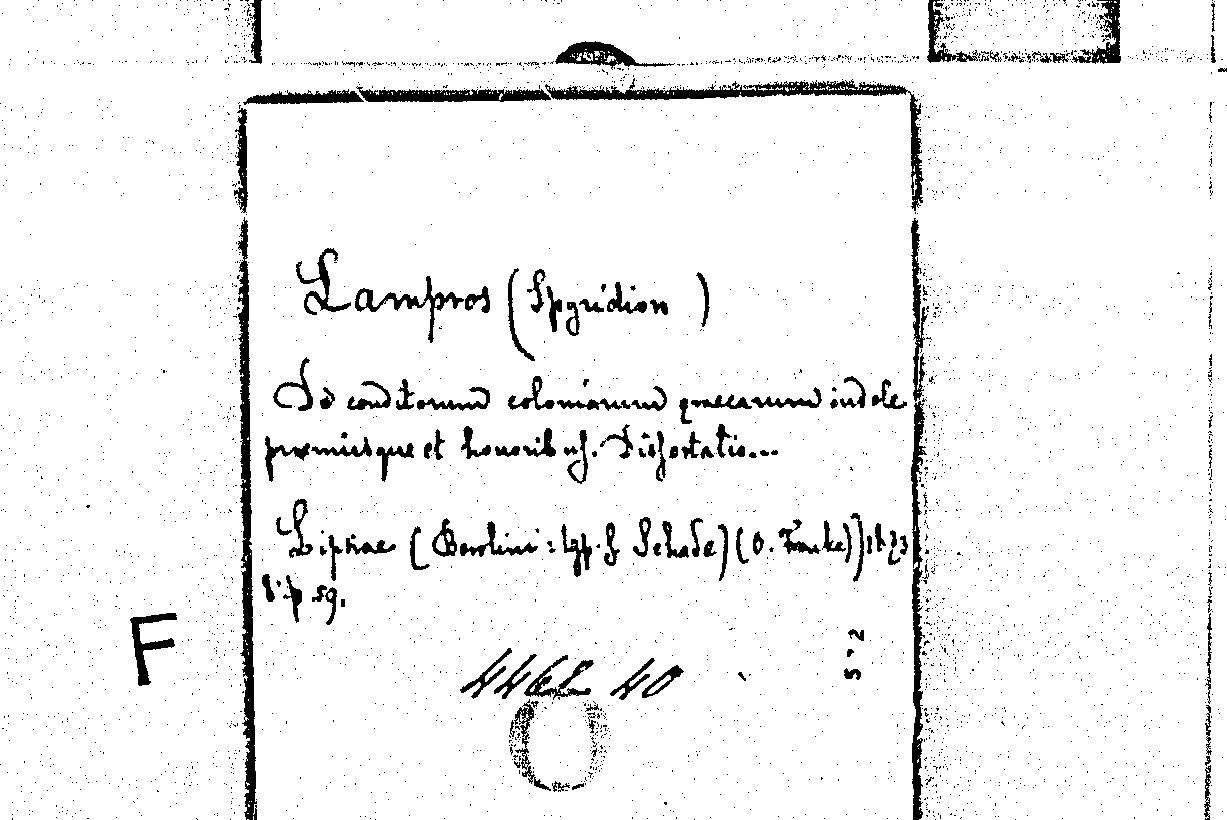 Lampros (Spyridion )
De conditorum coloniarum graecarum indole
praemiisque et honoribus. Dissertatio...
Lipsiae (Berolini: typ. G Schade) (O. Franke)) 1873
8° p 59.
F
5-2
4468 40